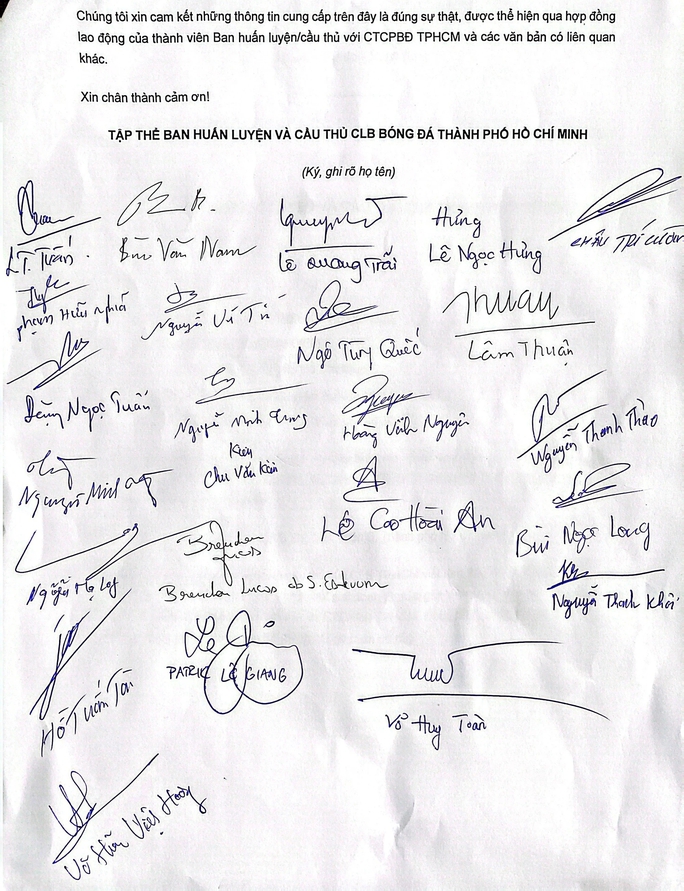 Chúng tôi xin cam kết những thông tin cung cấp trên đây là đúng sự thật, được thể hiện qua hợp đồng
lao động của thành viên Ban huấn luyện/cầu thủ với CTCPBĐ TPHCM và các văn bản có liên quan
khác.
Xin chân thành cảm ơn!
TẬP THỂ BAN HUẤN LUYỆN VÀ CẦU THỦ CLB BÓNG ĐÁ THÀNH PHỐ HỒ CHÍ MINH
(Ký, ghi rõ họ tên)
Hưng
L.T. Tuấn.
Bùi Văn Nam
Lê Quang Trãi
Lê Ngọc Hưng
CHÂU TRÍ CƯỜNG
Phạm Hữu Nghĩa
Nguyễn
Thuan
Ngô Tùng Quốc
Lâm Thuận
Ngọc Tuấn
Nguyễn Minh Trung
Hoàng Vĩnh Nguyên
Nguyễn Thanh Thảo
Kiên
Chu Văn Kiên
Nguyễn Minh
Lê Cao Hoài An
Bùi Ngọc Long
Brendan
Lucas
Nguyễn Hạ Long
Brendan Lucas
Nguyễn Thanh Khôi
PATRIK LÊ GIANG
Hồ Tuấn Tài
Võ Huy Toàn
Võ Hữu Việt Hoàng